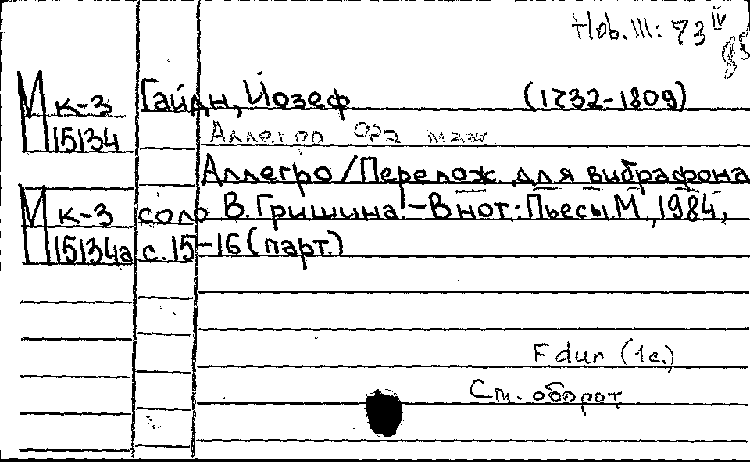 Hob. III: 73 IV
М к-3 Гайдн, Йозеф (1732-1809)
15134 Аллегро маж.
Аллегро/Перелож. для вибрафона
М к-3 соло В. Гришина.-В нот: Пьесы. М., 1984,
15134а с. 15-16 (парт.)
F dur (1е.)
См. оборот